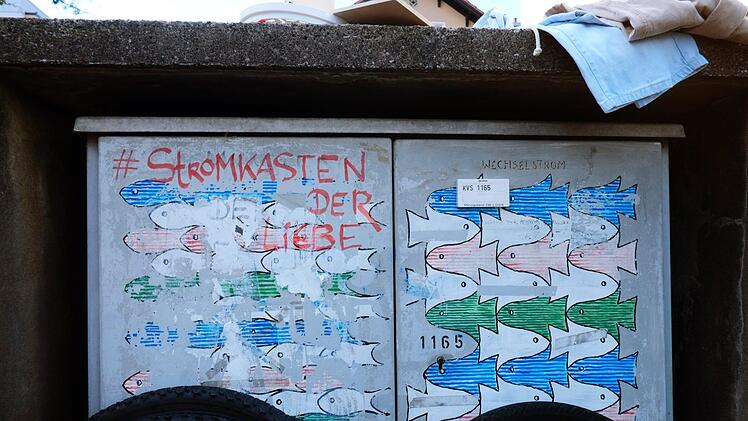 # STROMKASTEN
DER
LIEBE
WECHSELSTROM
KVS 1165
1165